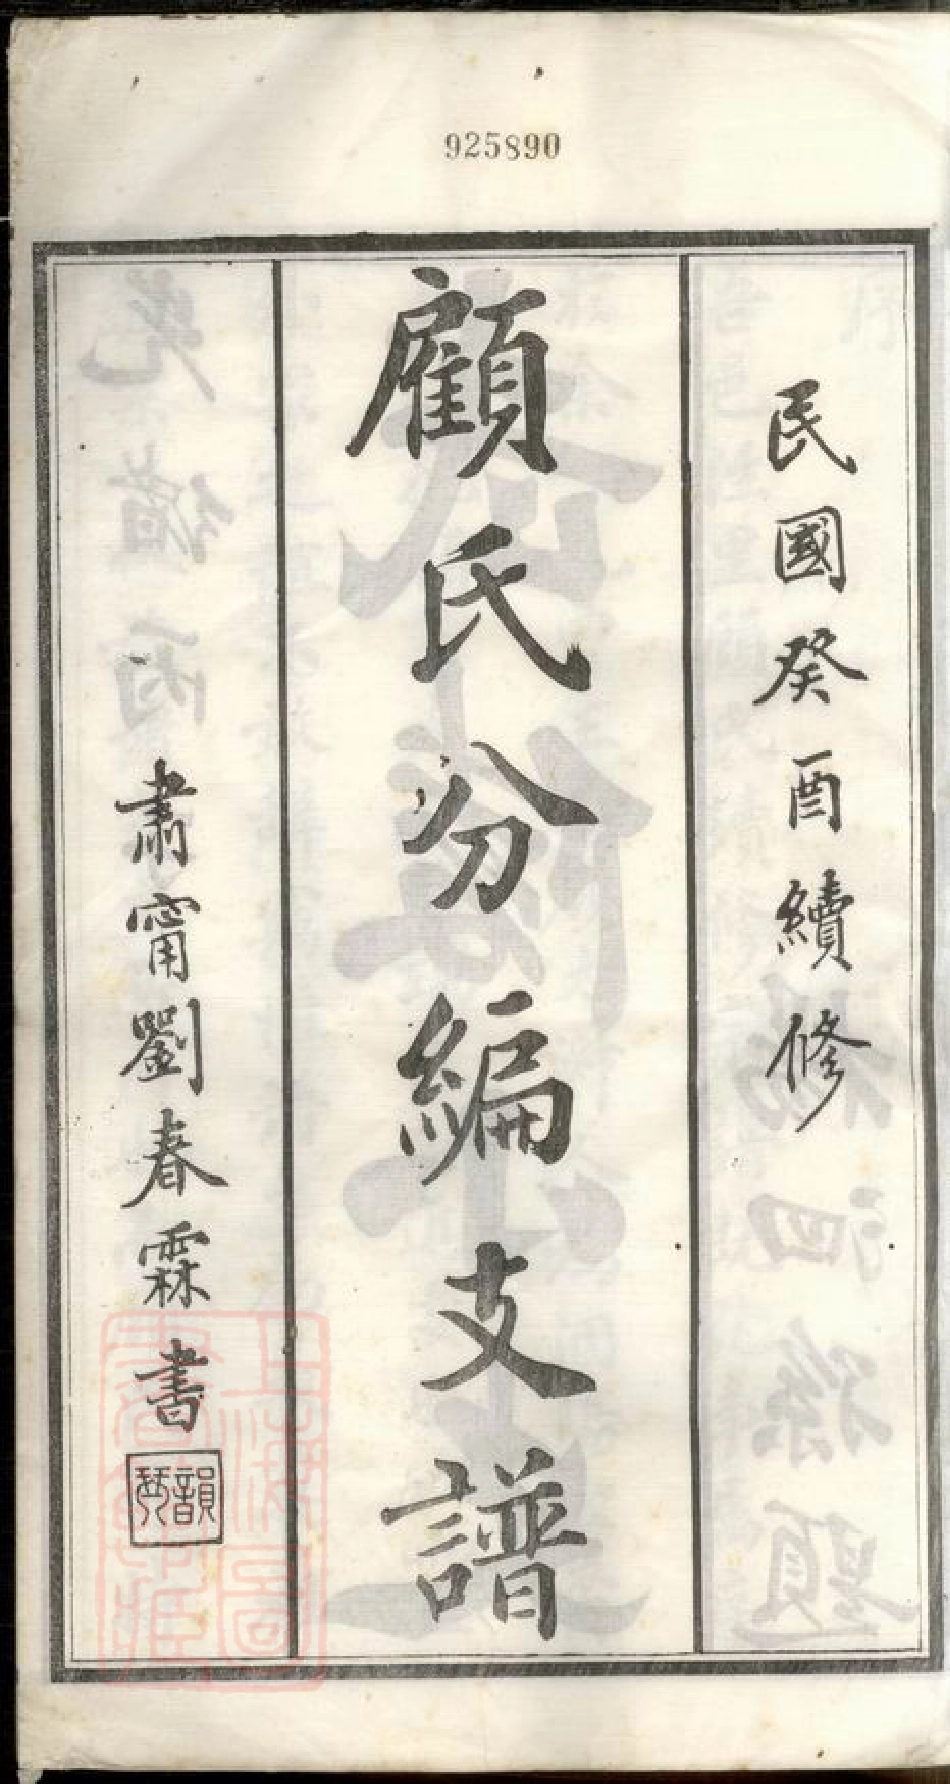 925890
民國癸酉續修
顧氏分編支譜
肅甯劉春霖書
韻琴
上海圖書館藏